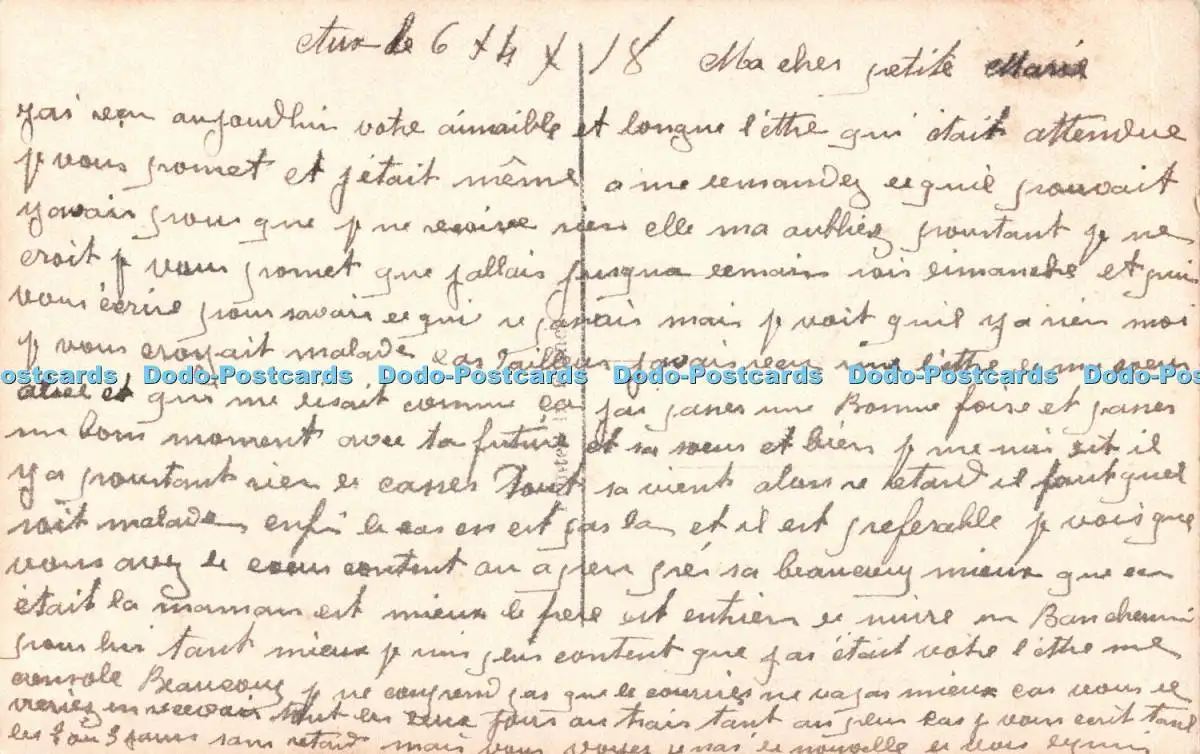 le 6 x 4 x 18 Ma cher petite Marie
J'ai reçu aujourdhui votre aimable et longue l'ettre qui était attendue
je vous promet et j'était même a me demandez ce qu'il pouvait
y avoir pour que je ne reçoive rien elle ma oubliez pourtant je ne
croit je vous promet que j'allais jusqua demain soir dimanche et puis
vous écrire pour savoir ce qui se mais je voit qu'il y a rien moi
je vous croyait malade car j'avais reçu une l'ettre
Dodo-Postcards Dodo-Postcards Dodo-Postcards Dodo-Postcards Dodo-Postcards
et qui me disait comme ça j'ai passer une Bonne foire et passer
un bon moment avec ta future et sa soeur et bien je me suis dit il
y a pourtant rien de casser Tout sa vient alors ce retard il faut quel
soit malade enfin le cas en est pas la et il est preferable je vois que
vous avez le content a peu près sa beaucoup mieux que
était la maman est mieux le père est entrien de
pour lui tant mieux je suis plus content que j'ai était votre l'ettre me
console Beaucoup je ne comprend pas que le courrier ne va pas mieux car vous de
vriez en recevoir tout les deux jours ou trois tant au plus car je vous ecrit tout
les 2 ou 3 jours sans retard mais vous voyez